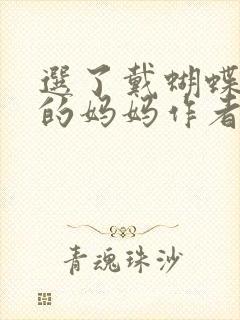 選了戴蝴蝶
的妈妈作者
青魂珠沙